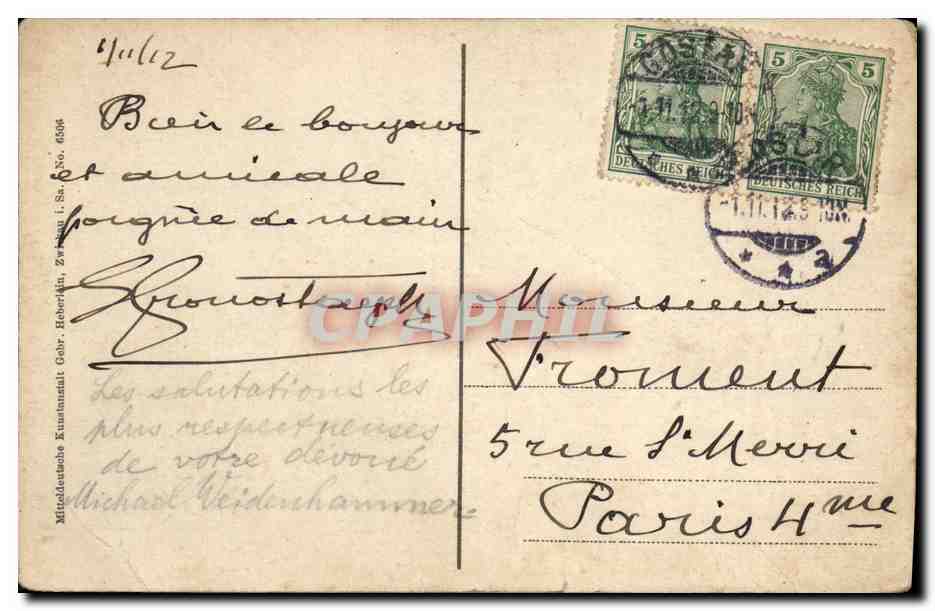 1/11/12
Bien le bonjour
et amicale
poignée de main
Les salutations les
plus respectueuses
de votre dévoué
Michael Veidenhammer
Mitteldeutsche Kunstanstalt Gebr. Heberlein, Zwickau i. Sa. No. 6506
5 5
DEUTSCHES REICH
DEUTSCHES REICH
GOSLAR
-1.11.12.9-10V.
* a
GOSLAR
-1.11.12.9-10V.
* a
CPAPHIL
Monsieur
Froment
5 rue St Merri
Paris 4me